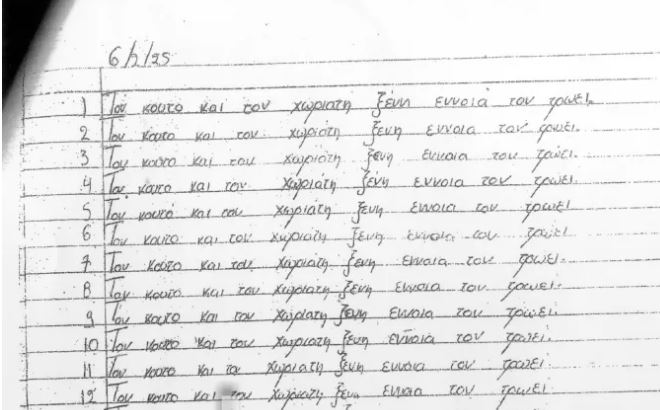 6/2/25
1 Τον κουτο και τον χωριατη ξένη εννοιά τον τρωει.
2 Τον κουτο και τον χωριάτη ξενη εννοια τον τρωει.
3 Τον κουτο και τον χωριάτη ξενη εννοια τον τρώει.
4 Τον κουτο και τον χωριάτη ξενη εννοια τον τρωει.
5 Τον κουτό και τον χωριάτη ξενη εννοια τον τρωει.
6 Τον κουτο και τον χωριάτη ξενη εννοια τον τρώει
7 Τον κουτο και τον χωριάτη ξενη εννοια τον τρωει.
8 Τον κουτο και τον χωριάτη ξενη εννοια τον τρωει.
9 Τον κουτο και τον χωριατη ξενη εννοια τον τρώει.
10 Τον κουτο και τον χωριατη ξενη εννοια τον τρωει.
11 Τον κουτο και το χωριατη ξενη εννοια τον τρωει
12 Τον κουτο και τον χωριατη ξενη εννοια τον τρωει.